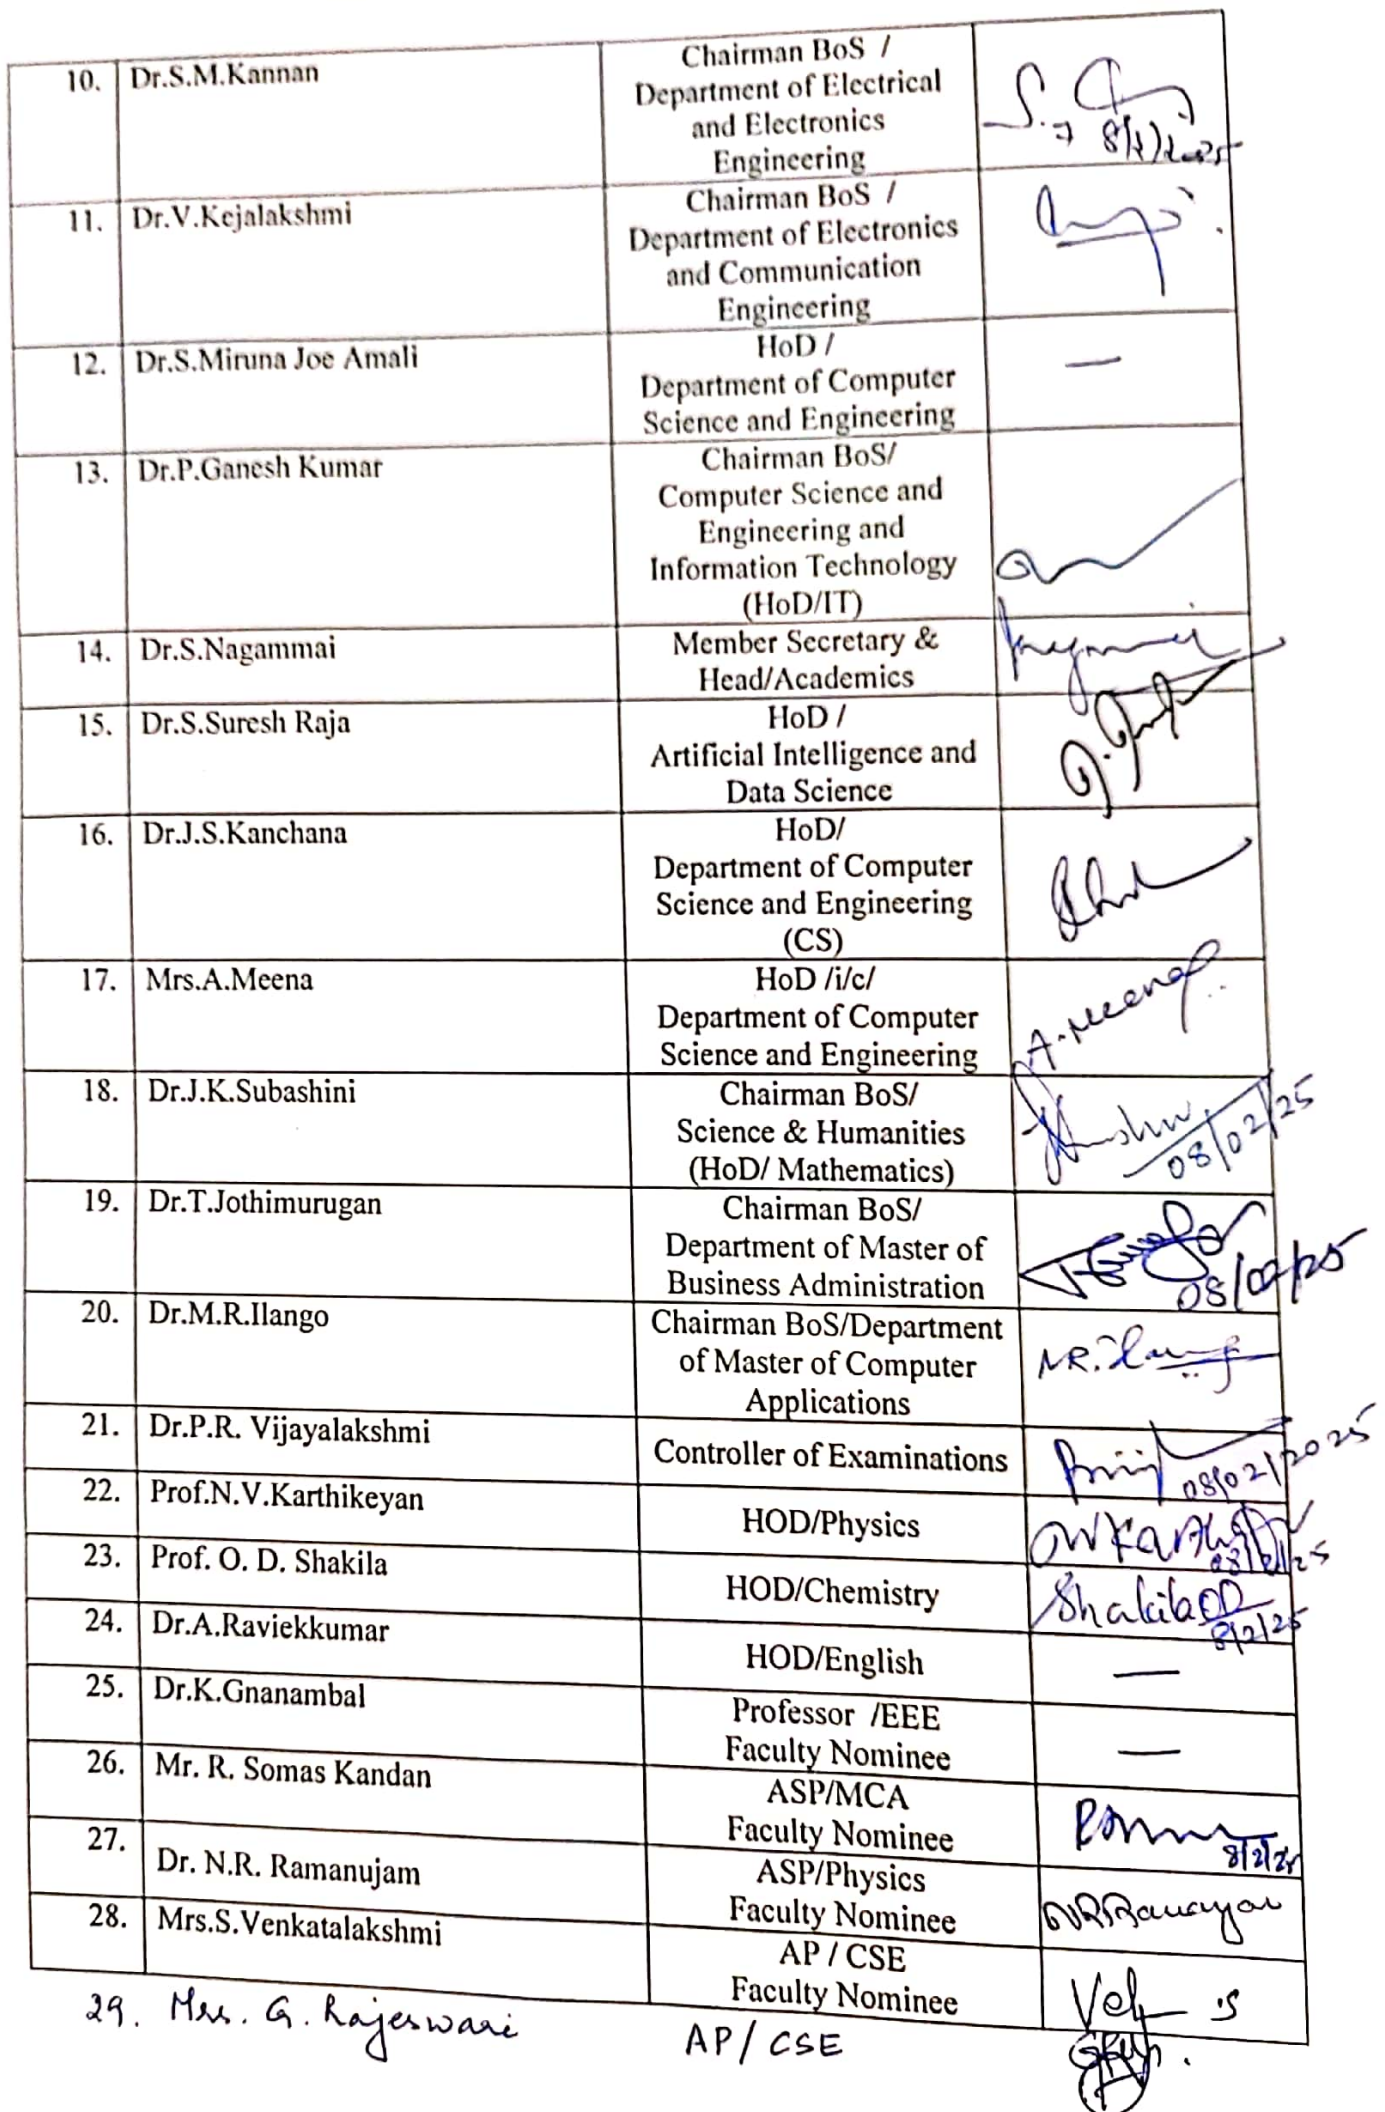 10. Dr.S.M.Kannan
Chairman BoS /
Department of Electrical
and Electronics
Engineering
S.
11. Dr.V.Kejalakshmi
Chairman BoS /
Department of Electronics
and Communication
Engineering
12. Dr.S.Miruna Joe Amali
HoD /
Department of Computer
Science and Engineering
—
13. Dr.P.Ganesh Kumar
Chairman BoS/
Computer Science and
Engineering and
Information Technology
(HoD/IT)
14. Dr.S.Nagammai
Member Secretary &
Head/Academics
15. Dr.S.Suresh Raja
HoD /
Artificial Intelligence and
Data Science
16. Dr.J.S.Kanchana
HoD/
Department of Computer
Science and Engineering
(CS)
17. Mrs.A.Meena
HoD /i/c/
Department of Computer
Science and Engineering
A.Meena
18. Dr.J.K.Subashini
Chairman BoS/
Science & Humanities
(HoD/ Mathematics)
08/02/25
19. Dr.T.Jothimurugan
Chairman BoS/
Department of Master of
Business Administration
08/02/25
20. Dr.M.R.Ilango
Chairman BoS/Department
of Master of Computer
Applications
21. Dr.P.R. Vijayalakshmi
Controller of Examinations
08/02/2025
22. Prof.N.V.Karthikeyan
HOD/Physics
23. Prof. O. D. Shakila
HOD/Chemistry
Shakila OD
8/2/25
24. Dr.A.Raviekkumar
HOD/English
—
25. Dr.K.Gnanambal
Professor /EEE
Faculty Nominee
—
26. Mr. R. Somas Kandan
ASP/MCA
Faculty Nominee
8/2/25
27. Dr. N.R. Ramanujam
ASP/Physics
Faculty Nominee
28. Mrs.S.Venkatalakshmi
AP / CSE
Faculty Nominee
29. Mrs. G. Rajeswari
AP/ CSE